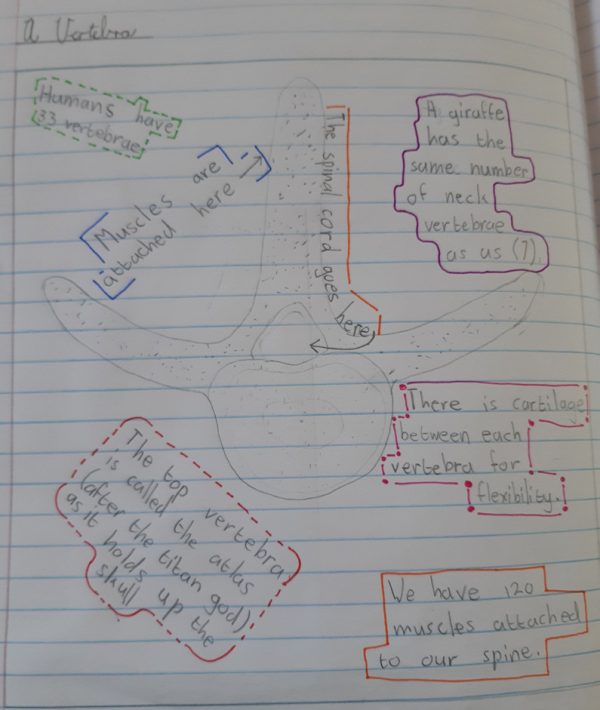 A Vertebra
Humans have
33 vertebrae
Muscles are
attached here
The spinal cord goes here
A giraffe
has the
same number
of neck
vertebrae
as us (7).
There is cartilage
between each
vertebra for
flexibility.
The top vertebra
is called the atlas
(after the titan god)
as it holds up the
skull
We have 120
muscles attached
to our spine.